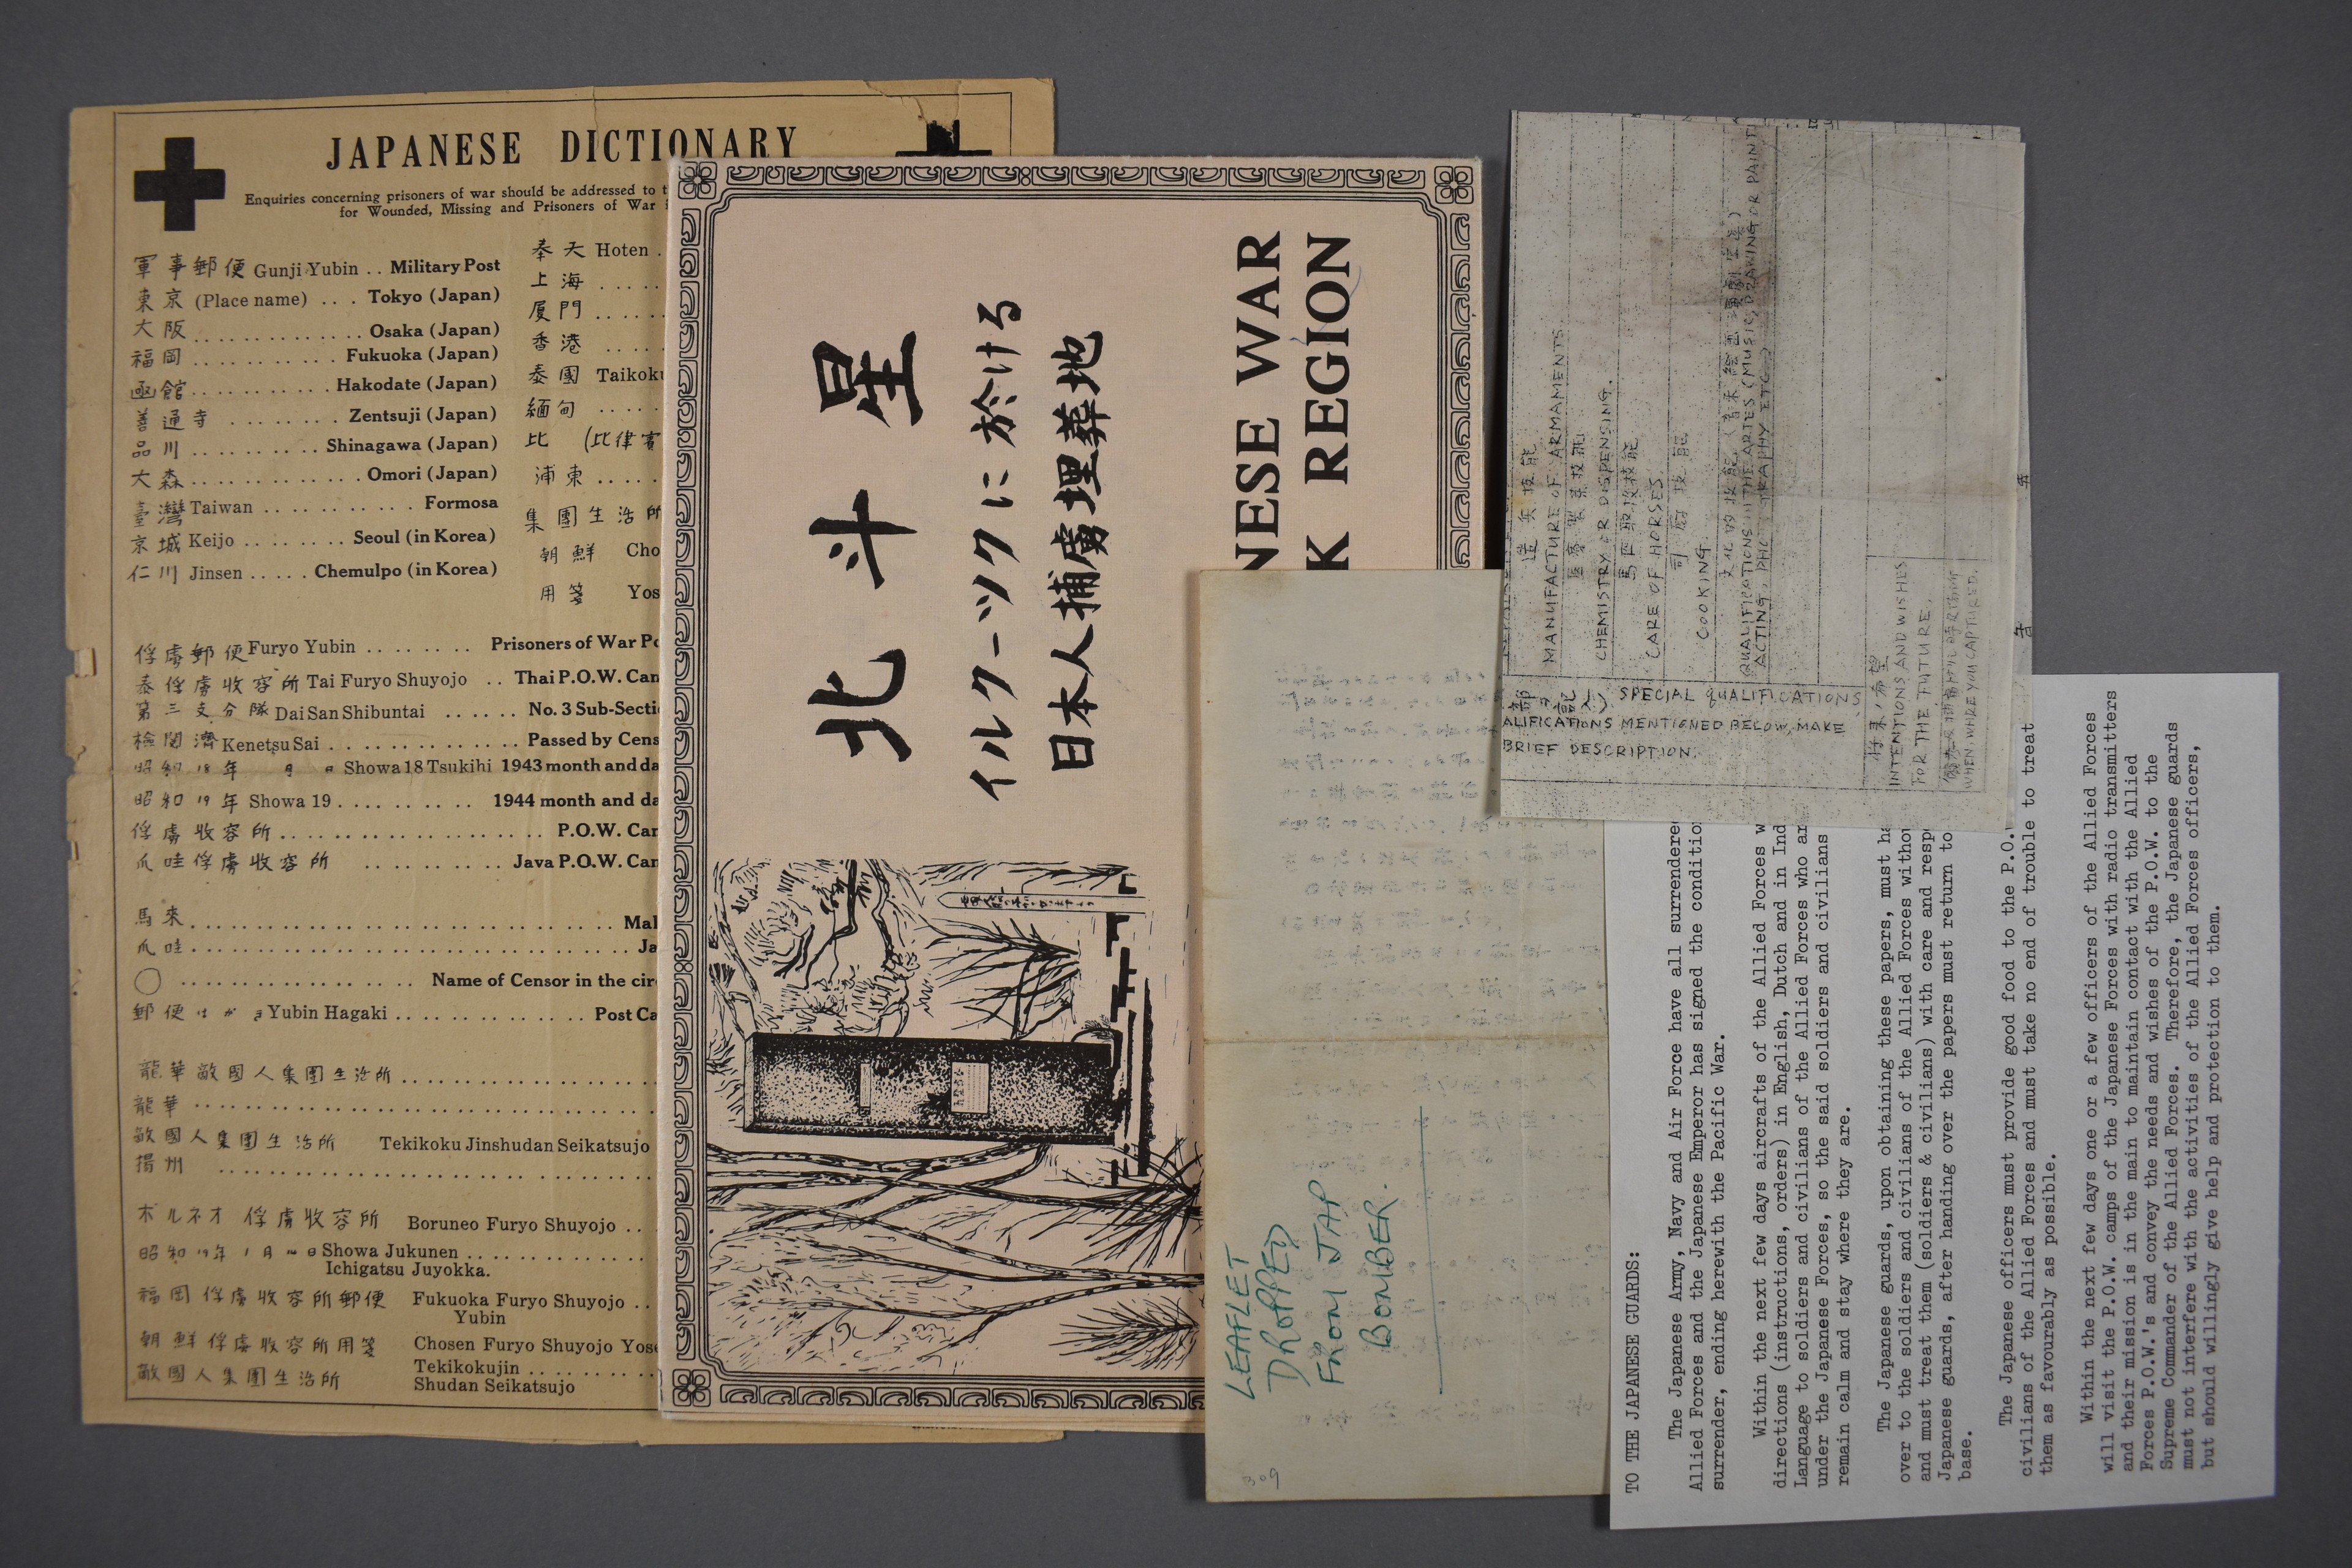 JAPANESE DICTIONARY
Enquiries concerning prisoners of war should be addressed to t
for Wounded, Missing and Prisoners of War
軍事郵便 Gunji Yubin .. Military Post
東京 (Place name) ... Tokyo (Japan)
大阪 .............. Osaka (Japan)
福岡 ............ Fukuoka (Japan)
函館 ............ Hakodate (Japan)
善通寺 ........ Zentsuji (Japan)
品川 .......... Shinagawa (Japan)
大森 .............. Omori (Japan)
臺灣 Taiwan ............ Formosa
京城 Keijo ........ Seoul (in Korea)
仁川 Jinsen ..... Chemulpo (in Korea)
奉天 Hoten .
上海 ....
厦門 ....
香港 ....
泰國 Taikoku
緬甸 ....
比 (比律賓
浦東 ....
集團生活所
朝鮮 Cho
用箋 Yos
俘虜郵便 Furyo Yubin ........ Prisoners of War Po
泰俘虜收容所 Tai Furyo Shuyojo .. Thai P.O.W. Cam
第三支分隊 Dai San Shibuntai ...... No. 3 Sub-Secti
檢閲濟 Kenetsu Sai ............... Passed by Cens
昭和18年 月 日 Showa 18 Tsukihi 1943 month and da
昭和19年 Showa 19 .......... 1944 month and da
俘虜收容所 ..................... P.O.W. Cam
爪哇俘虜收容所 ........... Java P.O.W. Cam
馬來 ................................. Mal
爪哇 .................................. Ja
◯ .................. Name of Censor in the circ
郵便はがき Yubin Hagaki .............. Post Ca
龍華敵國人集團生活所 ....................
龍華 ...................................
敵國人集團生活所 Tekikoku Jinshudan Seikatsujo
揚州 .................................
ボルネオ 俘虜收容所 Boruneo Furyo Shuyojo ..
昭和19年1月14日 Showa Jukunen ............
Ichigatsu Juyokka.
福岡俘虜收容所郵便 Fukuoka Furyo Shuyojo ..
Yubin
朝鮮俘虜收容所用箋 Chosen Furyo Shuyojo Yose
敵國人集團生活所 Tekikokujin ..........
Shudan Seikatsujo
北斗星
イルクーツクに於ける
日本人捕虜埋葬地
NESE WAR
K REGION
LEAFLET
DROPPED
FROM JAP
BOMBER.
309
造兵技能
MANUFACTURE OF ARMAMENTS.
CHEMISTRY OR DISPENSING.
CARE OF HORSES.
COOKING
QUALIFICATIONS IN THE ARTES (MUSIC, DRAWING OR PAINT
ACTING, PHOTOGRAPHY ETC.)
SPECIAL QUALIFICATIONS
ALIFICATIONS MENTIONED BELOW, MAKE
BRIEF DESCRIPTION.
将来ノ希望
INTENTIONS AND WISHES
FOR THE FUTURE.
WHEN WHERE YOU CAPTURED.
TO THE JAPANESE GUARDS:
The Japanese Army, Navy and Air Force have all surrendere
Allied Forces and the Japanese Emperor has signed the conditio
surrender, ending herewith the Pacific War.
Within the next few days aircrafts of the Allied Forces w
directions (instructions, orders) in English, Dutch and in Ind
Language to soldiers and civilians of the Allied Forces who ar
under the Japanese Forces, so the said soldiers and civilians
remain calm and stay where they are.
The Japanese guards, upon obtaining these papers, must ha
over to the soldiers and civilians of the Allied Forces withou
and must treat them (soldiers & civilians) with care and respe
Japanese guards, after handing over the papers must return to
base.
The Japanese officers must provide good food to the P.O.
civilians of the Allied Forces and must take no end of trouble to treat
them as favourably as possible.
Within the next few days one or a few officers of the Allied Forces
will visit the P.O.W. camps of the Japanese Forces with radio transmitters
and their mission is in the main to maintain contact with the Allied
Forces P.O.W.'s and convey the needs and wishes of the P.O.W. to the
Supreme Commander of the Allied Forces. Therefore, the Japanese guards
must not interfere with the activities of the Allied Forces officers,
but should willingly give help and protection to them.